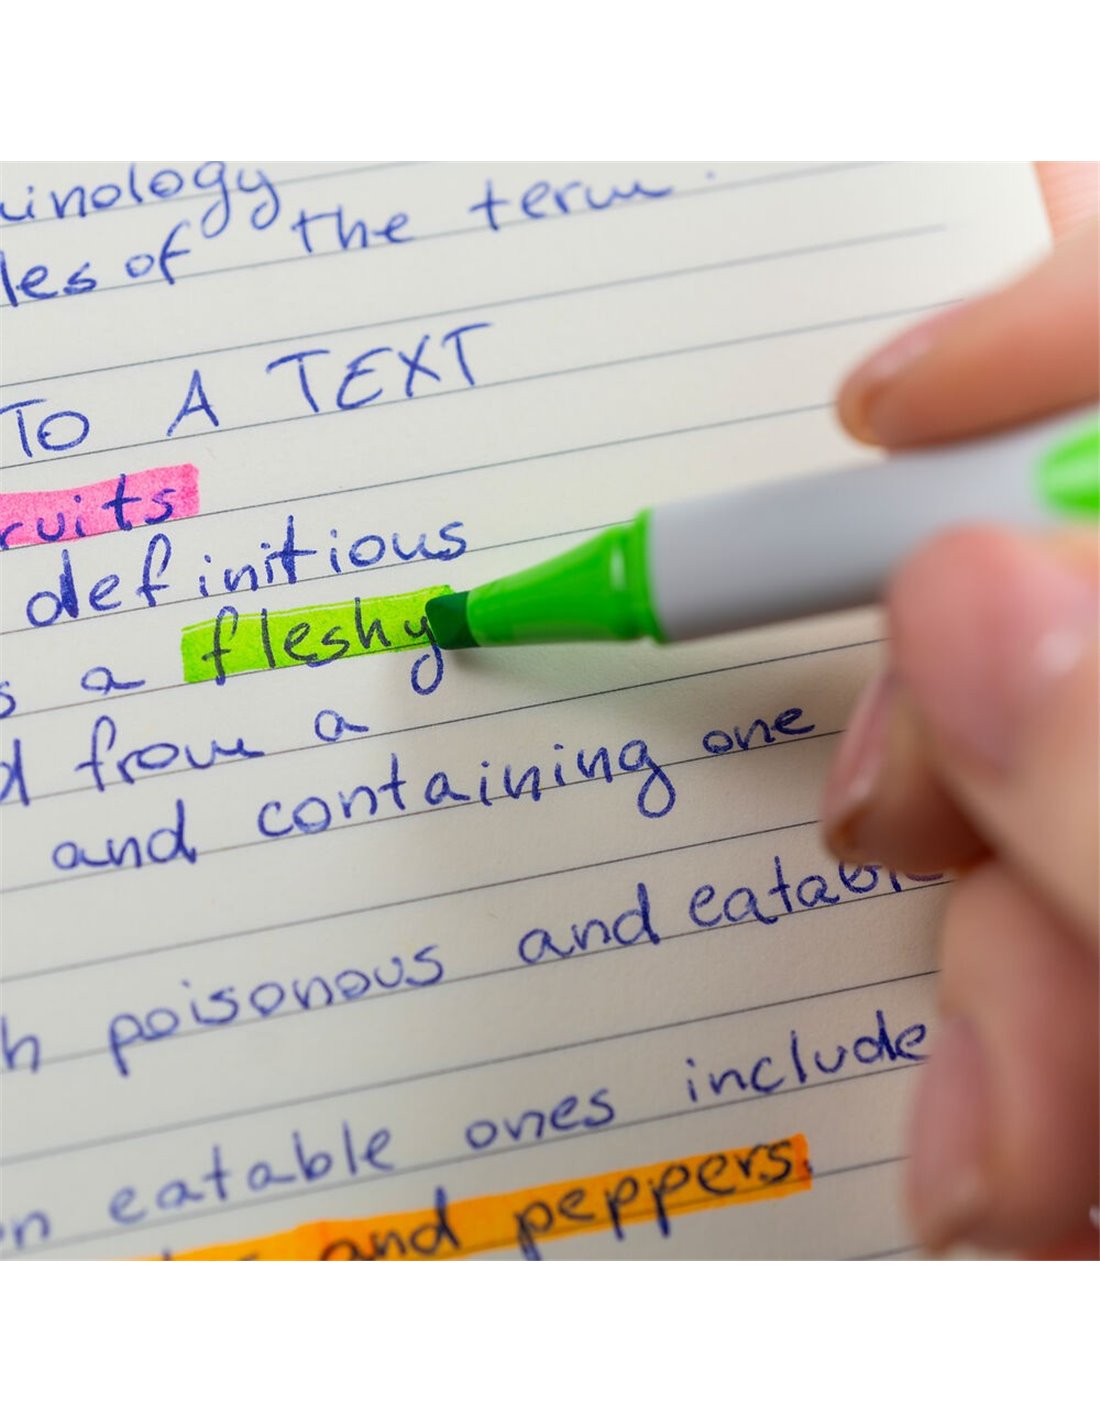 inology
les of the term.
TO A TEXT
ruits
definitions
s a fleshy
d from a
and containing one
h poisonous and eatabl
n eatable ones include
and peppers.